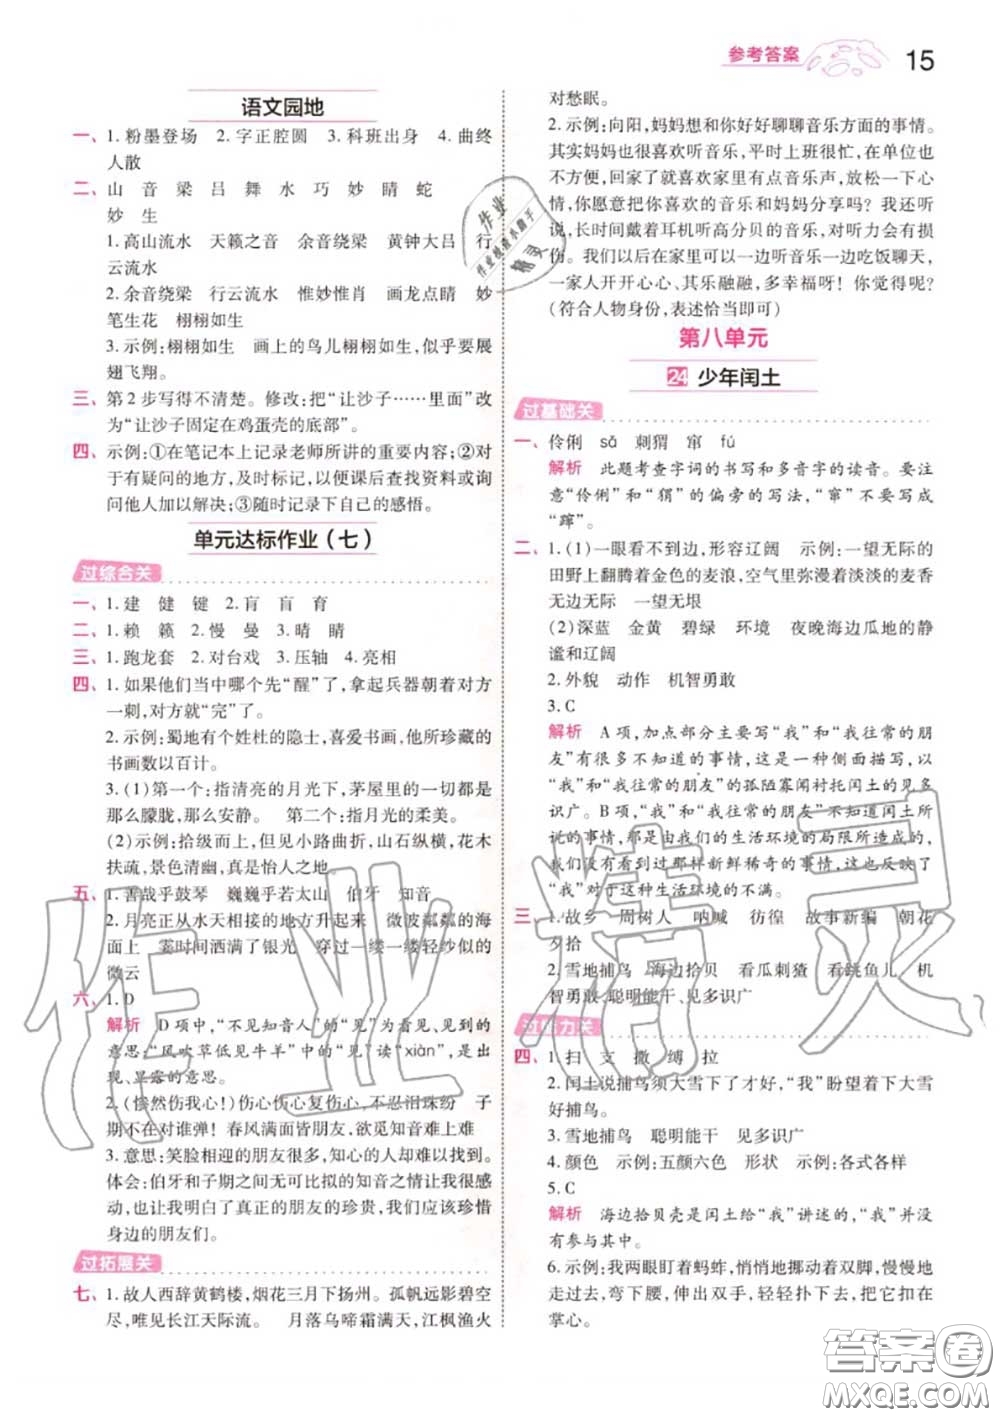 参考答案 15
语文园地
一、1.粉墨登场 2.字正腔圆 3.科班出身 4.曲终
人散
二、山 音 梁 吕 舞 水 巧 妙 睛 蛇
妙 生
1.高山流水 天籁之音 余音绕梁 黄钟大吕 行
云流水
2.余音绕梁 行云流水 惟妙惟肖 画龙点睛 妙
笔生花 栩栩如生
3.示例:栩栩如生 画上的鸟儿栩栩如生,似乎要展
翅飞翔。
三、第2步写得不清楚。修改:把“让沙子……里面”改
为“让沙子固定在鸡蛋壳的底部”。
四、示例:①在笔记本上记录老师所讲的重要内容;②对
于有疑问的地方,及时标记,以便课后查找资料或询
问他人加以解决;③随时记录下自己的感悟。
单元达标作业(七)
过综合关
一、1.建 健 键 2.肓 盲 育
二、1.赖 籁 2.慢 曼 3.晴 睛
三、1.跑龙套 2.对台戏 3.压轴 4.亮相
四、1.如果他们当中哪个先“醒”了,拿起兵器朝着对方
一刺,对方就“完”了。
2.示例:蜀地有个姓杜的隐士,喜爱书画,他所珍藏的
书画数以百计。
3.(1)第一个:指清亮的月光下,茅屋里的一切都是
那么朦胧,那么安静。 第二个:指月光的柔美。
(2)示例:拾级而上,但见小路曲折,山石纵横,花木
扶疏,景色清幽,真是怡人之地。
五、1.善哉乎鼓琴 巍巍乎若太山 伯牙 知音
2.月亮正从水天相接的地方升起来 微波粼粼的海
面上 霎时间洒满了银光 穿过一缕一缕轻纱似的
微云
六、1.D
解析 D项中,“不见知音人”的“见”为看见,看到的意
思;“风吹草低见牛羊”中的“见”读“xiàn”,是出
现、显露的意思。
2.(惨然伤我心!)伤心伤心复伤心,不忍泪珠纷 子
期不在对谁弹! 春风满面皆朋友,欲觅知音难上难
3.意思:笑脸相迎的朋友很多,知心的人却难以找到。
体会:伯牙和子期之间无可比拟的知音之情让我感
动,也让我明白了真正的朋友的珍贵,我们应该珍惜
身边的朋友们。
过拓展关
七、1.故人西辞黄鹤楼,烟花三月下扬州。孤帆远影碧空
尽,唯见长江天际流。 月落乌啼霜满天,江枫渔火
对愁眠。
2.示例:向阳,妈妈想和你好好聊聊音乐方面的事情。
其实妈妈也很喜欢听音乐,平时上班很忙,在单位也
不方便,回家了就喜欢家里有点音乐声,放松一下心
情,你愿意把你喜欢的音乐和妈妈分享吗?我还听
说,长时间戴着耳机听高分贝的音乐,对听力会有损
伤。我们以后在家里可以一边听音乐一边吃饭聊天,
一家人开开心心,其乐融融,多幸福呀!你觉得呢?
(符合人物身份,表述恰当即可)
第八单元
24 少年闰土
过基础关
一、伶俐 sǎ 刺猬 窜 fú
解析 此题考查字词的书写和多音字的读音。要注
意“伶俐”和“猬”的偏旁的写法,“窜”不要写成
“蹿”。
二、1.(1)一眼看不到边,形容辽阔 示例:一望无际的
田野上翻腾着金色的麦浪,空气里弥漫着淡淡的麦香
无边无际 一望无垠
(2)深蓝 金黄 碧绿 环境 夜晚海边瓜地的静
谧和辽阔
2.外貌 动作 机智勇敢
3.C
解析 A项,加点部分主要写“我”和“我往常的朋
友”有很多不知道的事情,这是一种侧面描写,以
“我”和“我往常的朋友”的孤陋寡闻衬托闰土的见多
识广。B项,“我”和“我往常的朋友”不知道闰土所
说的事情,那是由我们的生活环境的局限所造成的,
我们没有看到过那样新鲜稀奇的事情,这也反映了
“我”对于这种生活环境的不满。
三、1.故乡 周树人 呐喊 彷徨 故事新编 朝花
夕拾
2.雪地捕鸟 海边拾贝 看瓜刺猹 看跳鱼儿 机
智勇敢 聪明能干 见多识广
过能力关
四、1.扫 支 撒 缚 拉
2.闰土说捕鸟须大雪下了才好,“我”盼望着下大雪
好捕鸟。
3.雪地捕鸟 聪明能干 见多识广
4.颜色 示例:五颜六色 形状 示例:各式各样
5.C
解析 海边拾贝壳是闰土给“我”讲述的,“我”并没
有参与其中。
6.示例:我两眼盯着蚂蚱,悄悄地挪动着双脚,慢慢地
走过去,弯下腰,伸出双手,轻轻扑下去,把它抓在
掌心。
作业精灵
答案圈
MXQE.COM